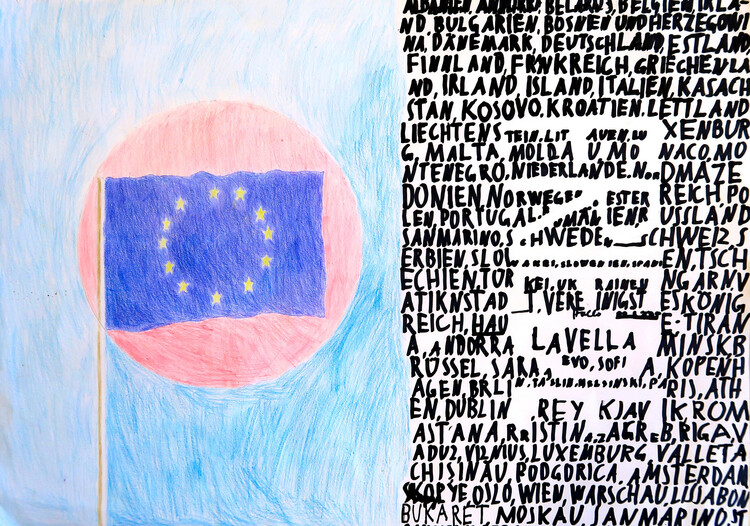 BELARUS, BELGIEN, IRLA-
ND, BULGARIEN, BOSNEN UND HERZEGOWI
NA, DÄNEMARK, DEUTSCHLAND, ESTLAND,
FINNLAND, FRNKREICH, GRIECHENLA
ND, IRLAND, ISLAND, ITALIEN, KASACH
STAN, KOSOVO, KROATIEN, LETTLAND
LIECHTENSTEIN, LIT AUEN, LU XENBUR
G, MALTA, MOLDA U, MO NACO, MO
NTENEGRO, NIEDERLANDE, NORDMAZE
DONIEN, NORWEGE, ESTER REICH, PO
LEN, PORTUGAL, MÄN IEN, RUSSLAND
SANMARINO, SCHWEDE SCHWEIZ, S
ERBIEN, SLOWAKEI, SLOWENIEN, SPANIEN, TSCH
ECHIEN, TÜR KEI, UK RAINE, UNGARN, V
ATIKNSTAD T, VERE INIGST ES KÖNIG
REICH, HAU E: TIRAN
A, ANDORRA LAVELLA MINSK, B
RÜSSEL, SARA EVO, SOFI A, KOPENH
AGEN, BRLI N, TALLIN, HELSINSKI, PARIS, ATH
EN, DUBLIN REY KJAV IK ROM
ASTANA, PRISTINA, ZAGREB, RIGA, V
ADUZ, VILNIUS, LUXEMBURG, VALLETA
CHISINAU, PODGORICA, AMSTERDAM
SKOPYE, OSLO, WIEN, WARSCHAU, LISSABON
BUKARET, MOSKAU, SANMARINO, ST